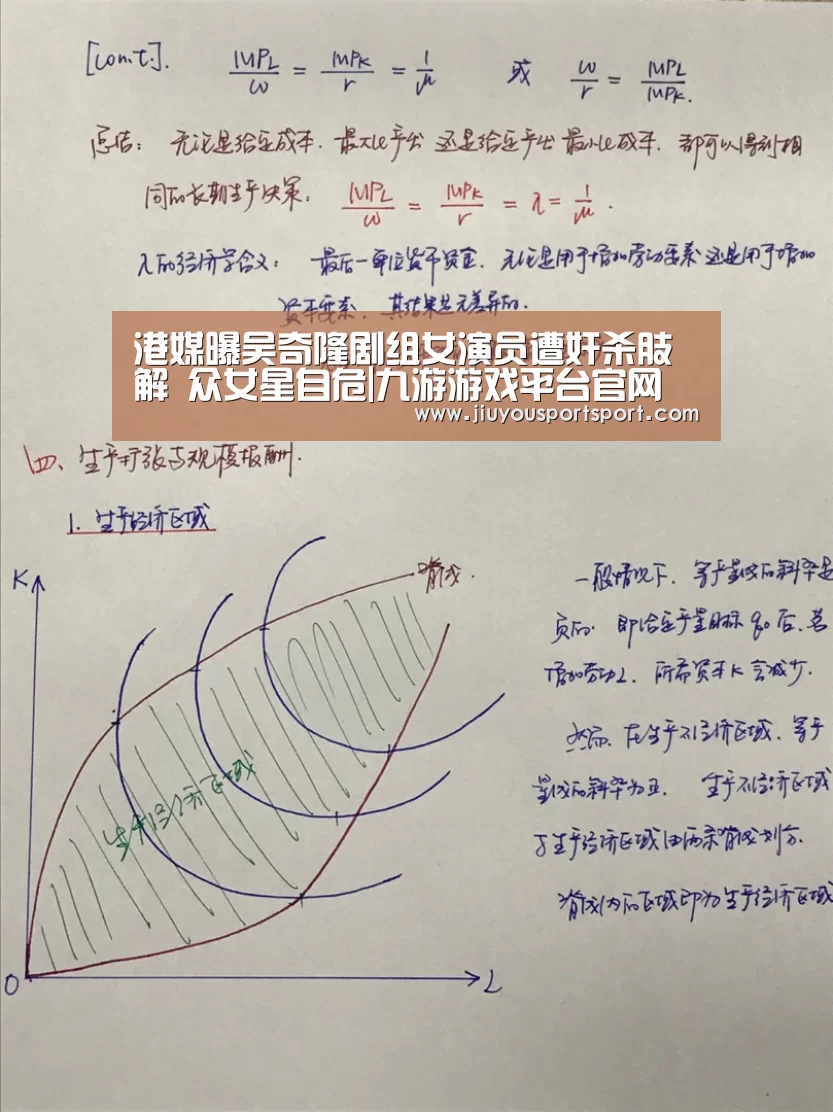 [Con.t.]. MPL/ω = MPK/r = 1/μ 或 ω/r = MPL/MPK.
总结: 无论是给定成本.最大化产出 还是给定产出 最小化成本. 都可以得到相
同的长期生产决策: MPL/ω = MPK/r = λ = 1/μ.
λ的经济学含义: 最后一单位货币资金.无论是用于增加劳动要素 还是用于增加
资本要素.其结果是无差异的.
港媒曝吴奇隆剧组女演员遭奸杀肢
解 众女星自危|九游游戏平台官网
www.jiuyousportsport.com
四、生产扩张与规模报酬.
1. 生产经济区域
K
脊线.
生产经济区域
O
L
一般情况下.等产量线的斜率是
负的. 即给定产量目标 q0 后.若
增加劳动L. 所需资本K会减少.
然而.在生产不经济区域.等产
量线的斜率为正. 生产不经济区域
与生产经济区域由两条脊线划分.
脊线内的区域即为生产经济区域